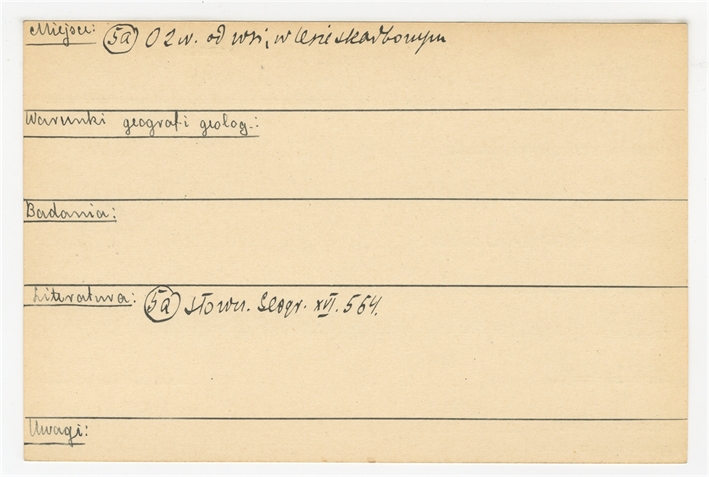 Miejsce: 5a O 2 w. od wsi, w lesie skarbowym
Warunki geograf. i geolog.:
Badania:
Literatura: 5a Słown. Geogr. XVI. 564.
Uwagi: